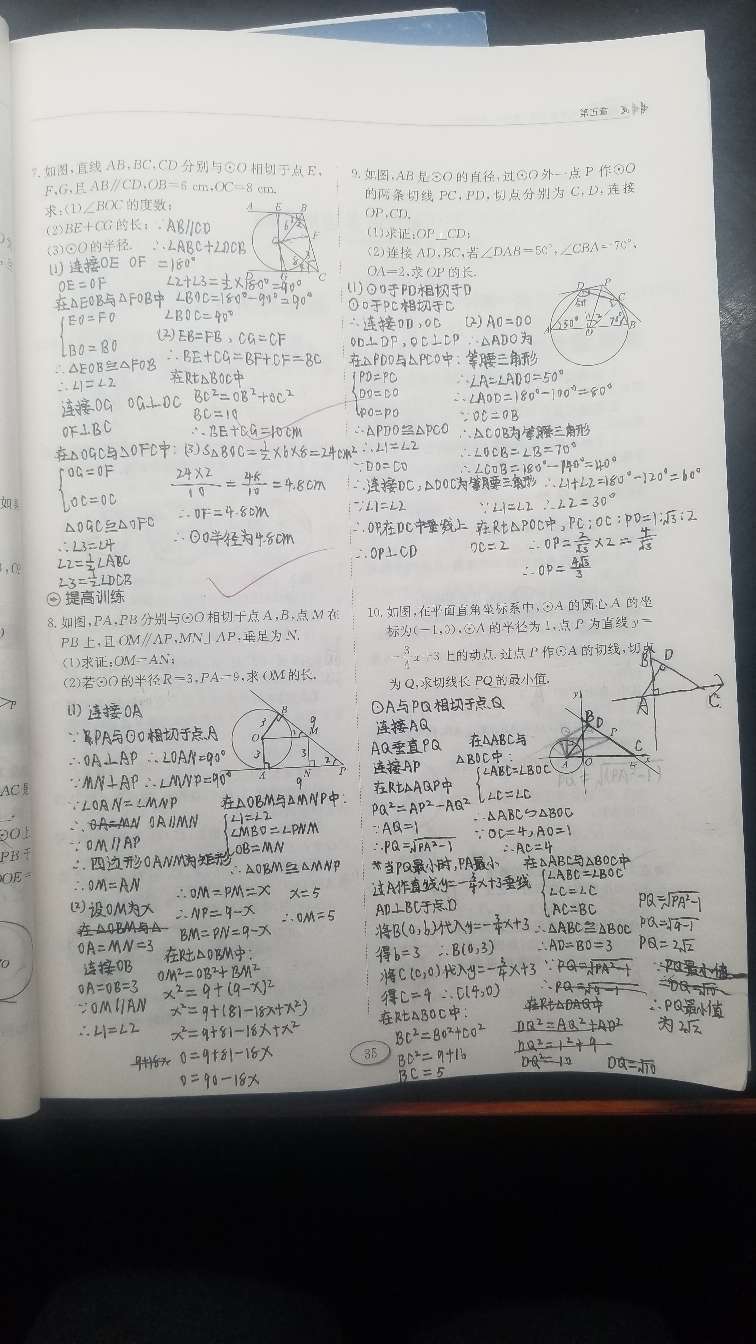 第五章 圆
7. 如图,直线 AB,BC,CD 分别与⊙O 相切于点 E,
F,G,且 AB∥CD,OB=6 cm,OC=8 cm.
求:(1)∠BOC 的度数;
(2)BE+CG 的长;
(3)⊙O 的半径.
∵AB∥CD
∴∠ABC+∠DCB
=180°
(1) 连接OE OF
OE=OF
在△EOB与△FOB中
EO=FO
BO=BO
∴△EOB≌△FOB
∴∠1=∠2
连接OG OG⊥DC
OF⊥BC
在△OGC与△OFC中:
OG=OF
OC=OC
△OGC≌△OFC
∴∠3=∠4
∠2=½∠ABC
∠3=½∠DCB
∠2+∠3=½×180°=90°
∠BOC=180°-90°=90°
∠BOC=90°
(2) EB=FB, CG=CF
∴BE+CG=BF+CF=BC
在Rt△BOC中
BC²=OB²+OC²
BC=10
∴BE+CG=10cm
(3) S△BOC=½×6×8=24cm²
24×2/10=48/10=4.8cm
∴OF=4.8cm
∴⊙O半径为4.8cm
提高训练
8. 如图,PA,PB 分别与⊙O 相切于点 A,B,点 M 在
PB 上,且 OM∥AP,MN⊥AP,垂足为 N.
(1)求证:OM=AN;
(2)若⊙O 的半径 R=3,PA=9,求 OM 的长.
(1) 连接OA
∵PA与⊙O相切于点A
∴OA⊥AP ∴∠OAN=90°
∵MN⊥AP ∴∠MNP=90°
∵∠OAN=∠MNP
∴OA=MN OA∥MN
∵OM∥AP
∴四边形OANM为矩形
∴OM=AN
(2) 设OM为x
在△OBM与△
OA=MN=3
连接OB
OA=OB=3
∵OM∥AN
∴∠1=∠2
在△OBM与△MNP中:
∠1=∠2
∠MBO=∠PNM
OB=MN
∴△OBM≌△MNP
∴OM=PM=x
∴NP=9-x
BM=PN=9-x
在Rt△OBM中:
OM²=OB²+BM²
x²=9+(9-x)²
x²=9+(81-18x+x²)
x²=9+81-18x+x²
9+18x
0=9+81-18x
0=90-18x
x=5
∴OM=5
9. 如图,AB 是⊙O 的直径,过⊙O 外一点 P 作⊙O
的两条切线 PC,PD,切点分别为 C,D,连接
OP,CD.
(1)求证:OP⊥CD;
(2)连接 AD,BC,若∠DAB=50°,∠CBA=70°,
OA=2,求 OP 的长.
(1) ⊙O于PD相切于D
⊙O于PC相切于C
∴连接OD,OC
OD⊥DP,OC⊥CP
在△PDO与△PCO中:
PD=PC
DO=CO
PO=PO
∴△PDO≌△PCO
∴∠1=∠2
∵DO=CO
∴连接DC,△DOC为等腰三角形
∵∠1=∠2
∴OP在DC中垂线上
∴OP⊥CD
(2) AO=DO
∴△ADO为
等腰三角形
∴∠A=∠ADO=50°
∴∠AOD=180°-100°=80°
∵OC=OB
∴△COB为等腰三角形
∴∠OCB=∠B=70°
∴∠COB=180°-140°=40°
∴∠1+∠2=180°-120°=60°
∵∠1=∠2 ∴∠2=30°
在Rt△POC中,PC:OC:PO=1:√3:2
OC=2 ∴OP=2/√3×2=4/√3
∴OP=4√3/3
10. 如图,在平面直角坐标系中,⊙A 的圆心 A 的坐
标为(-1,0),⊙A 的半径为 1,点 P 为直线 y=
-¾x+3 上的动点,过点 P 作⊙A 的切线,切点
为 Q,求切线长 PQ 的最小值.
⊙A与PQ相切于点Q
连接AQ
AQ垂直PQ
连接AP
在Rt△AQP中
PQ²=AP²-AQ²
∵AQ=1
∴PQ=√PA²-1
*当PQ最小时,PA最小
过A作直线y=-¾x+3垂线
AD⊥BC于点D
将B(0,b)代入y=-¾x+3
得b=3 ∴B(0,3)
将C(0,0)代入y=-¾x+3
得C=4 ∴C(4,0)
在Rt△BOC中:
BC²=BO²+CO²
BC²=9+16
BC=5
在△ABC与
△BOC中:
∠ABC=∠BOC
∠C=∠C
∴△ABC∽△BOC
∵OC=4,AO=1
∴AC=4
在△ABC与△BOC中
∠ABC=∠BOC
∠C=∠C
AC=BC
∴△ABC≌△BOC
∴AD=BO=3
∵PQ=√PA²-1
∴PQ=√9-1
在Rt△DAQ中
DQ²=AQ²+AD²
DQ²=1²+9
DQ²=10
DQ=√10
PQ=√PA²-1
PQ=√9-1
PQ=2√2
∵PQ最小值
=DQ=√10
∴PQ最小值
为2√2
35